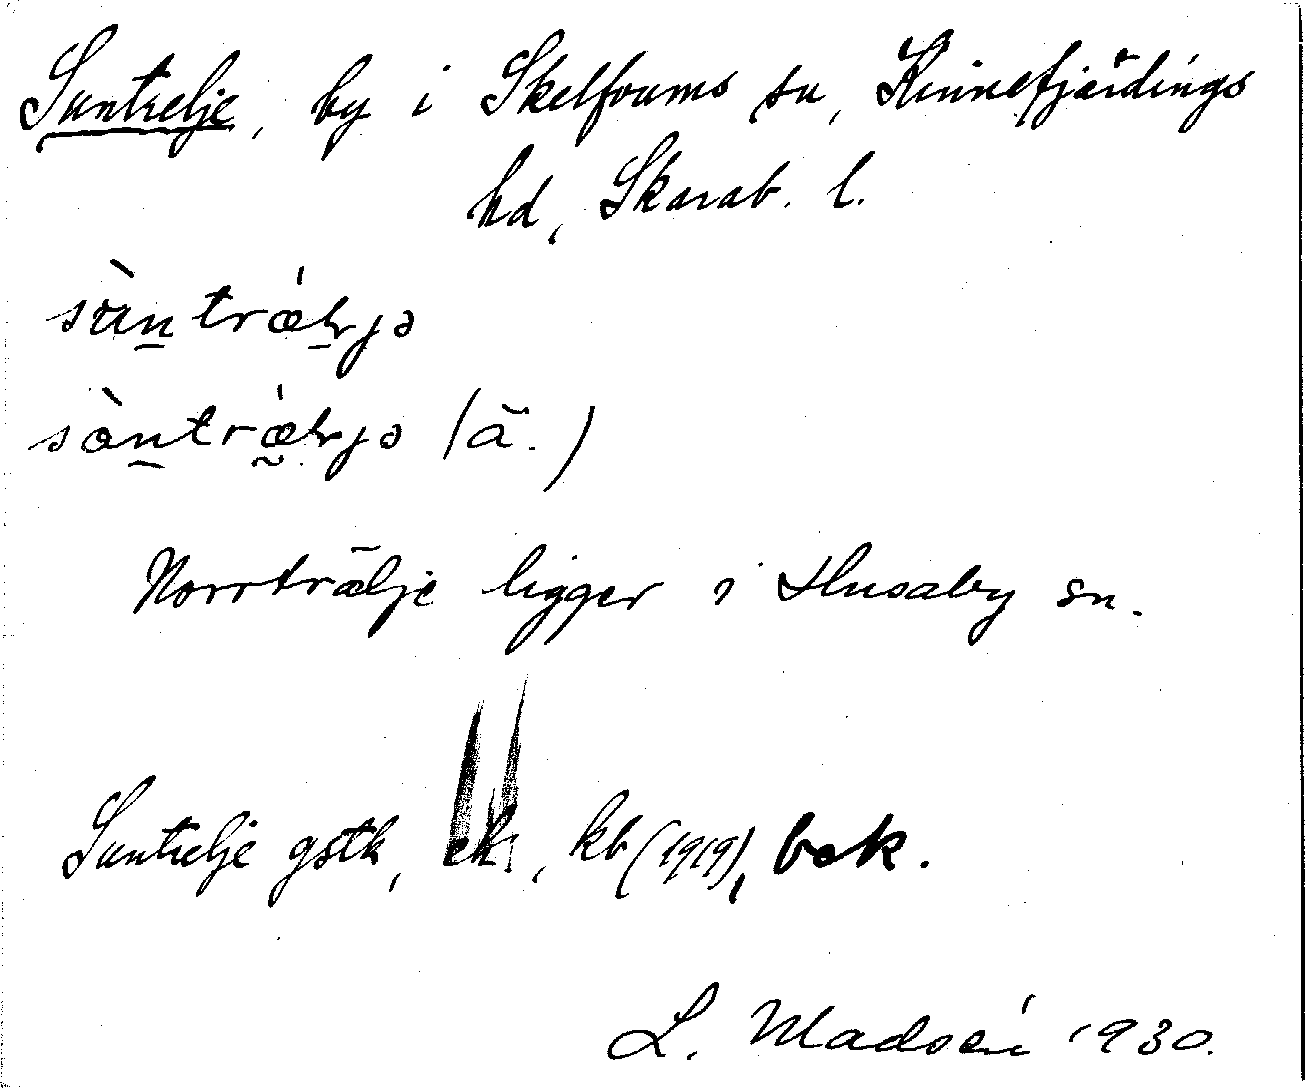 Suntrelje, by i Skelfvums sn, Kinnefjärdings
hd, Skarab. l.
sùn̠trǽl̠jə
sòn̠trǽljə (ä.)
Norrträlje ligger i Husaby sn.
Suntrelje gstk, ek, kb (1919), bok.
L. Madsén 1930.